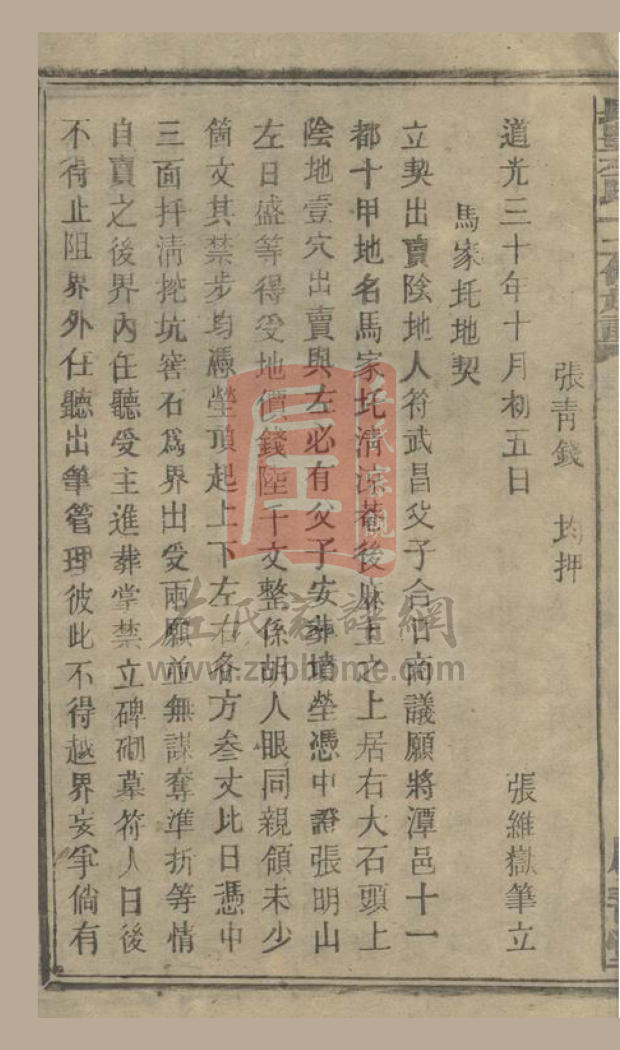 張青錢 均押
道光三十年十月初五日 張維嶽筆立
馬家圫地契
立契出賣陰地人符武昌父子合口商議願將潭邑十一
都十甲地名馬家圫清涼菴後之上居右大石頭上
陰地壹穴出賣與左必有父子安葬墳塋憑中證張明山
左日盛等得受地價錢陸千文整係胡人眼同親領未少
箇文其禁步均憑塋頂起上下左右各方叁丈比日憑中
三面扦清挖坑窖石爲界出受兩願並無謀奪準折等情
自賣之後界內任聽受主進葬掌禁立碑砌墓符人日後
不得止阻界外任聽出筆管理彼此不得越界妄爭倘有
左氏家譜網
www.zuohome.com